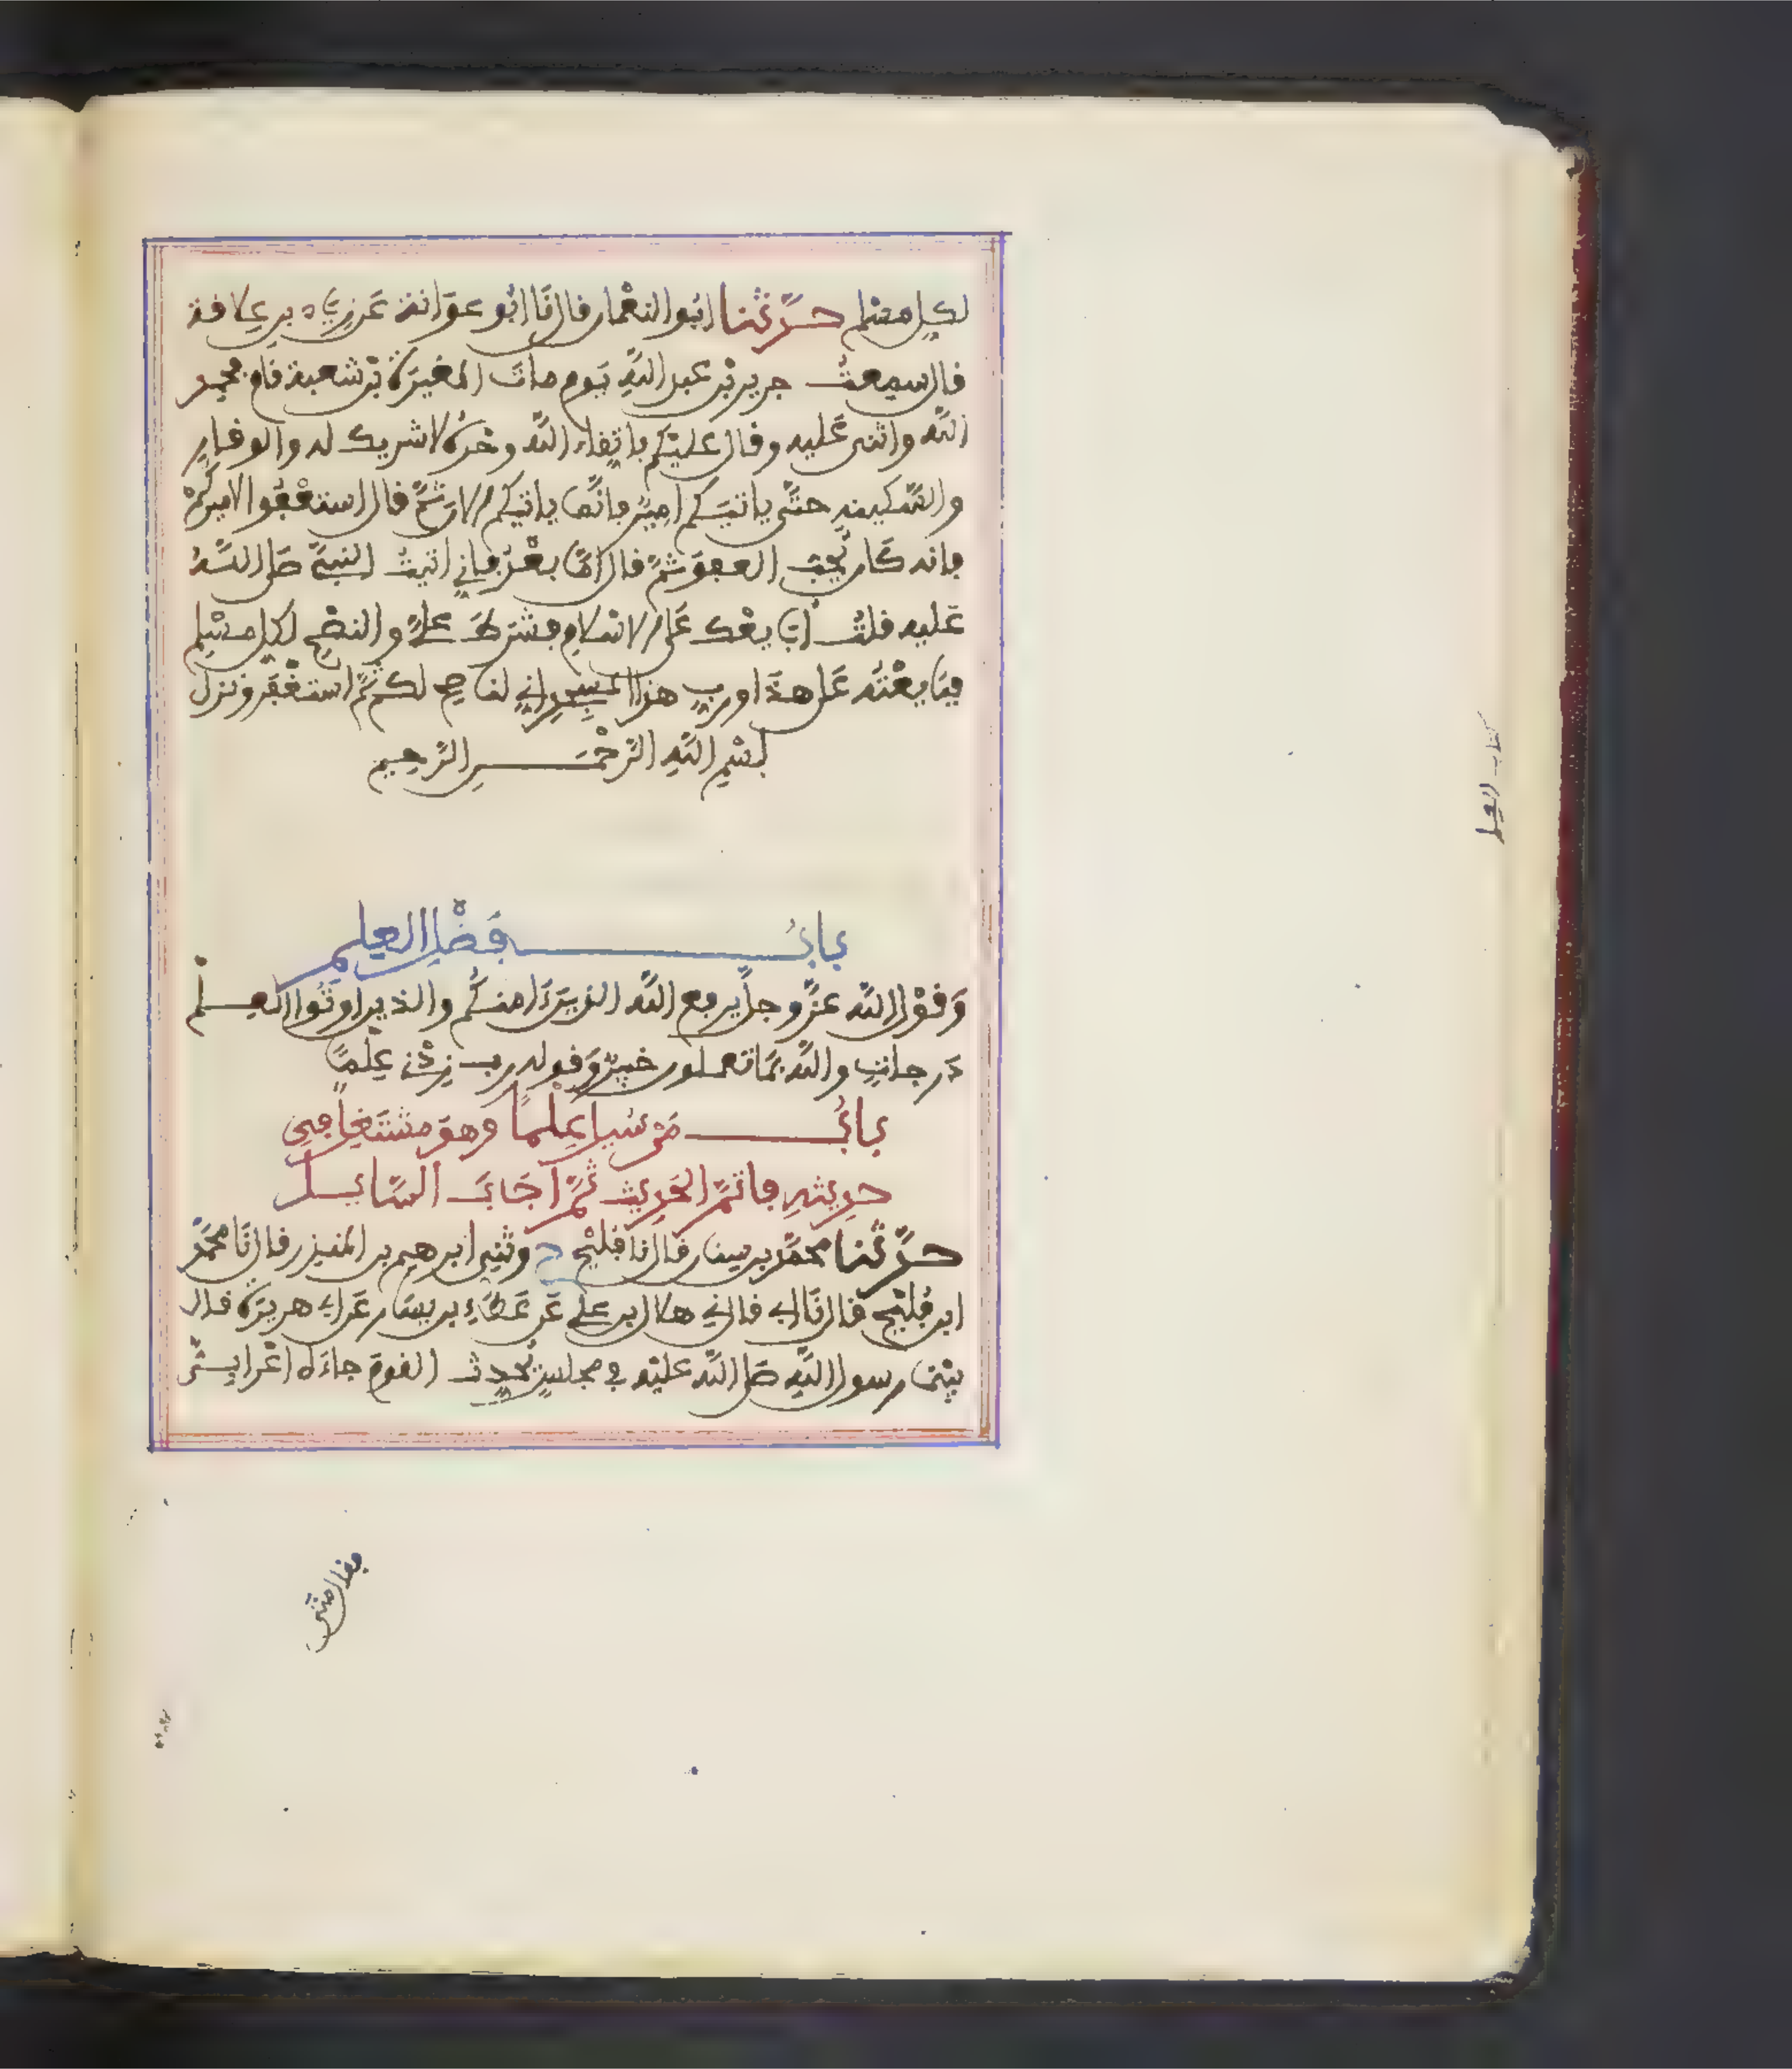 لكل مسلم حدّثنا ابُو النعْمان قال نَا ابُو عوَانة عَن زِيَاد بن عِلاقة
قال سمعتُ جرير بْن عبد اللّه يَوم ماتَ المغيرَة بْن شعبة قام فحمِد
اللّه واثنى عَليه وقال عليْكم باتقاء اللّه وحْدَهُ لا شريك له والوقارِ
والسَّكينةِ حتَّى ياتيَكم اميرٌ فانَّما ياتيكم الان ثمَّ قال استعْفُوا لاميرِكُمْ
فانه كَان يُحِبّ العفوَ ثمَّ قال امَّا بعْدُ فاني اتيتُ النبيَّ صَلى اللّهُ
عَليه قلتُ أُبَايعْك عَلى الاسْلامِ فشترطَ عليَّ والنصْحِ لكل مسْلِم
فبَايعْتُه عَلى هذَا وربِ هذا المسْجدِ اني لنَاصِح لكم ثمَّ استغْفَر ونزل
بسْمِ اللّهِ الرّحْمَــنِ الرّحِيمِ
بابُ فَضْلِ العِلمِ
وَقوْل اللّه عزَّ وجلَّ يرفع اللّه الذِينَ ءَامنُكُم والذين اوتُوا العِــلْم
دَرجاتٍ واللّه بمَا تعملون خبِيرٌ وَقوله رب زِدْنِي عِلْمًا
بابُ مَن سُئِل عِلْمًا وهوَ مشتَغِل فِي
حدِيثهِ فاتمَّ الحَدِيثَ ثمَّ اجَابَ السَّايــل
حدّثنا محمّد بن سِنان قال نا فليْح ح وثنِي ابرهيم بن المنذِر قال نَا محمَّد
ابن فُليْح قال نَا ابي قال ني هلال بن علي عَن عَطَاءِ بن يسَار عَن ابي هريرَة قال
بيْنمَا رسول اللّهِ صَلى اللّه عليْه في مجلسٍ يُحدِث القومَ جاءَه اعْرابِــيٌّ
فقال متى
كتاب العلم